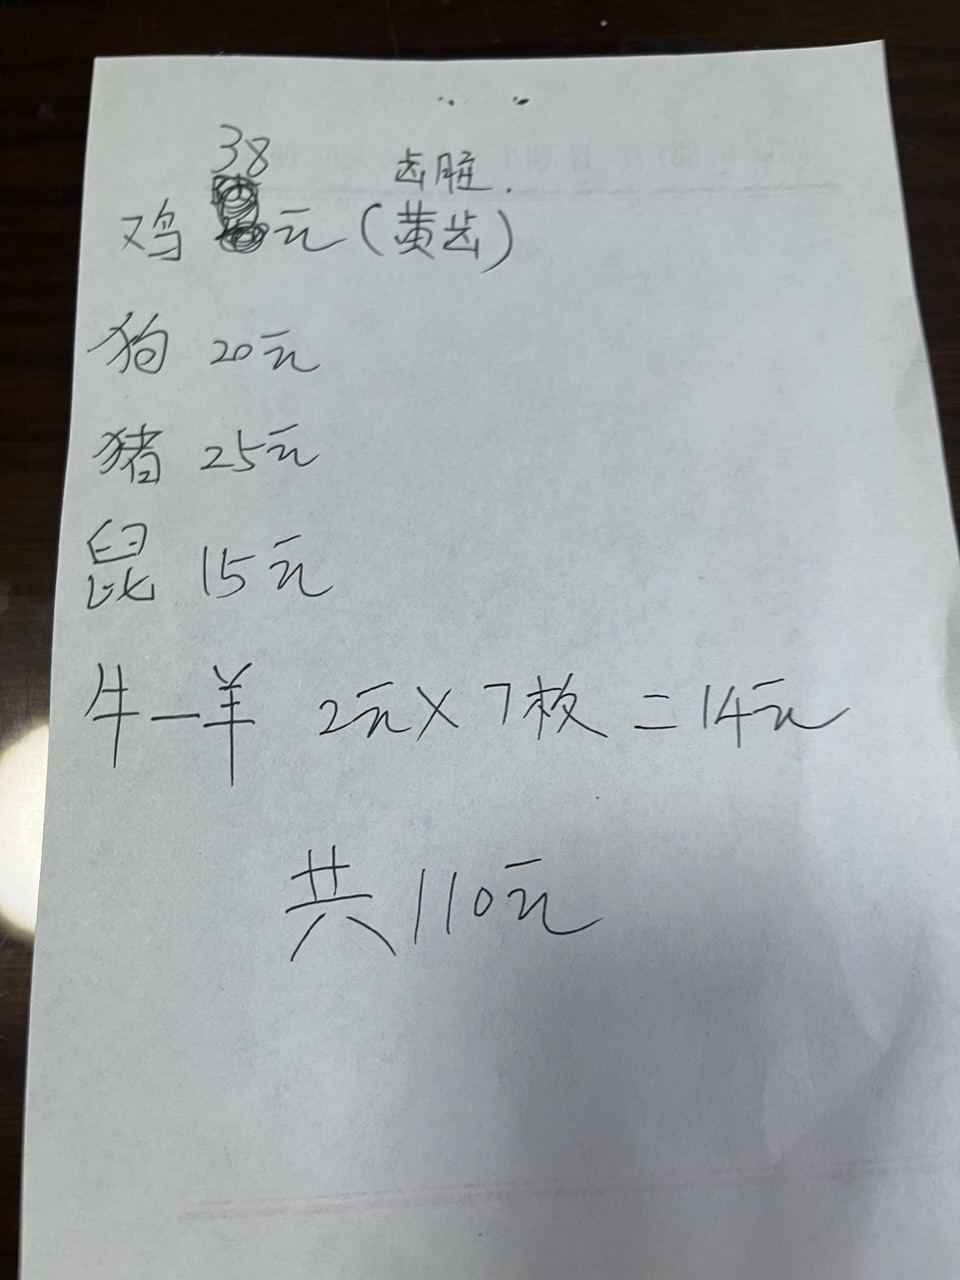 38 齿脏.
鸡 元(黄齿)
狗 20元
猪 25元
鼠 15元
牛—羊 2元×7枚=14元
共110元